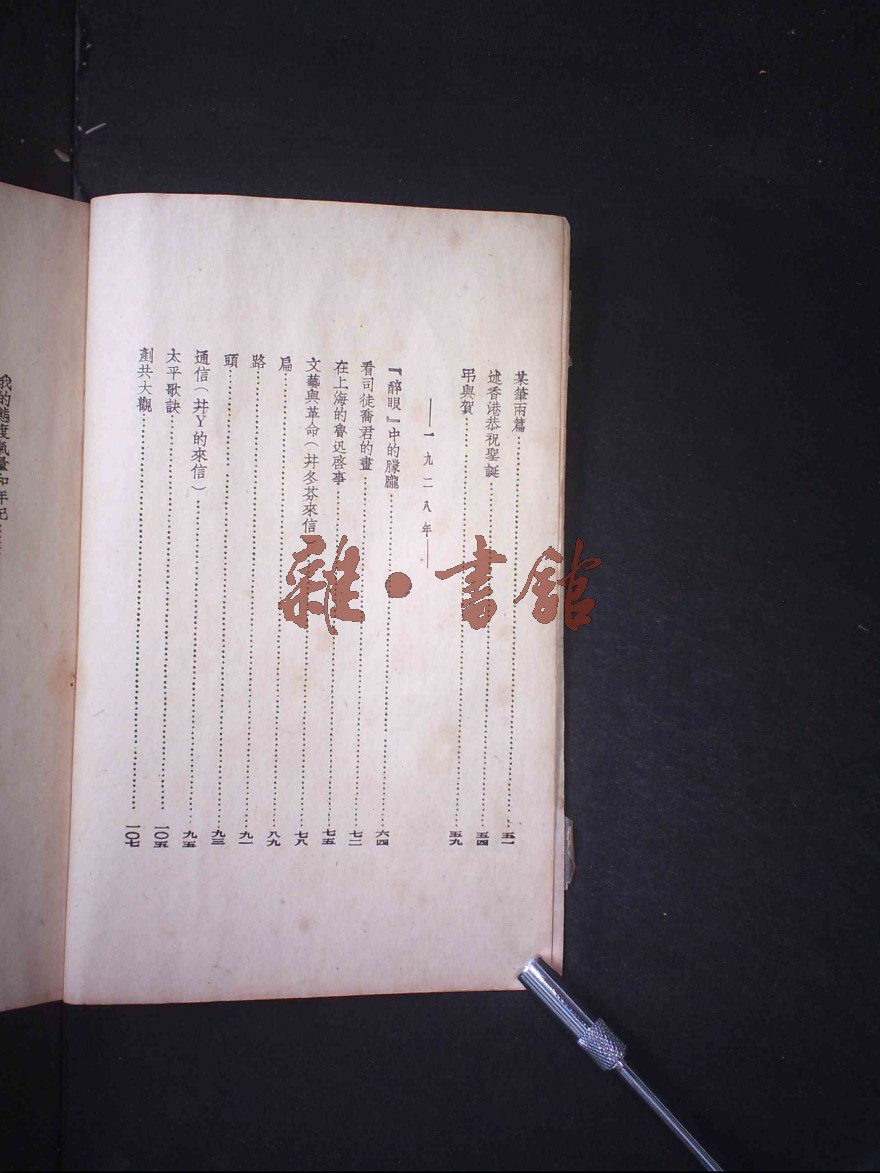 某筆兩篇……五一
述香港恭祝聖誕……五四
弔與賀……五九
——一九二八年——
『醉眼』中的朦朧……六四
看司徒喬君的畫……七二
在上海的魯迅啓事……七五
文藝與革命(幷冬芬來信……七八
扁……八九
路……九一
頭……九三
通信(幷Y的來信)……九五
太平歌訣……一〇五
剷共大觀……一〇七
我的態度氣量和年紀……
雜·書館